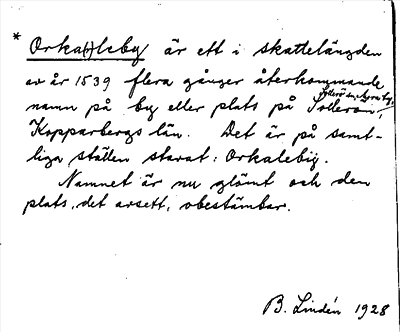 * Orka(r)leby är ett i skattelängden
av år 1539 flera gånger återkommande
namn på by eller plats på Solleron,
Kopparbergs län. Det är på samt-
liga ställen stavat: Orkalebij.
Namnet är nu glömt och den
plats, det avsett, obestämbar.
B. Lindén 1928